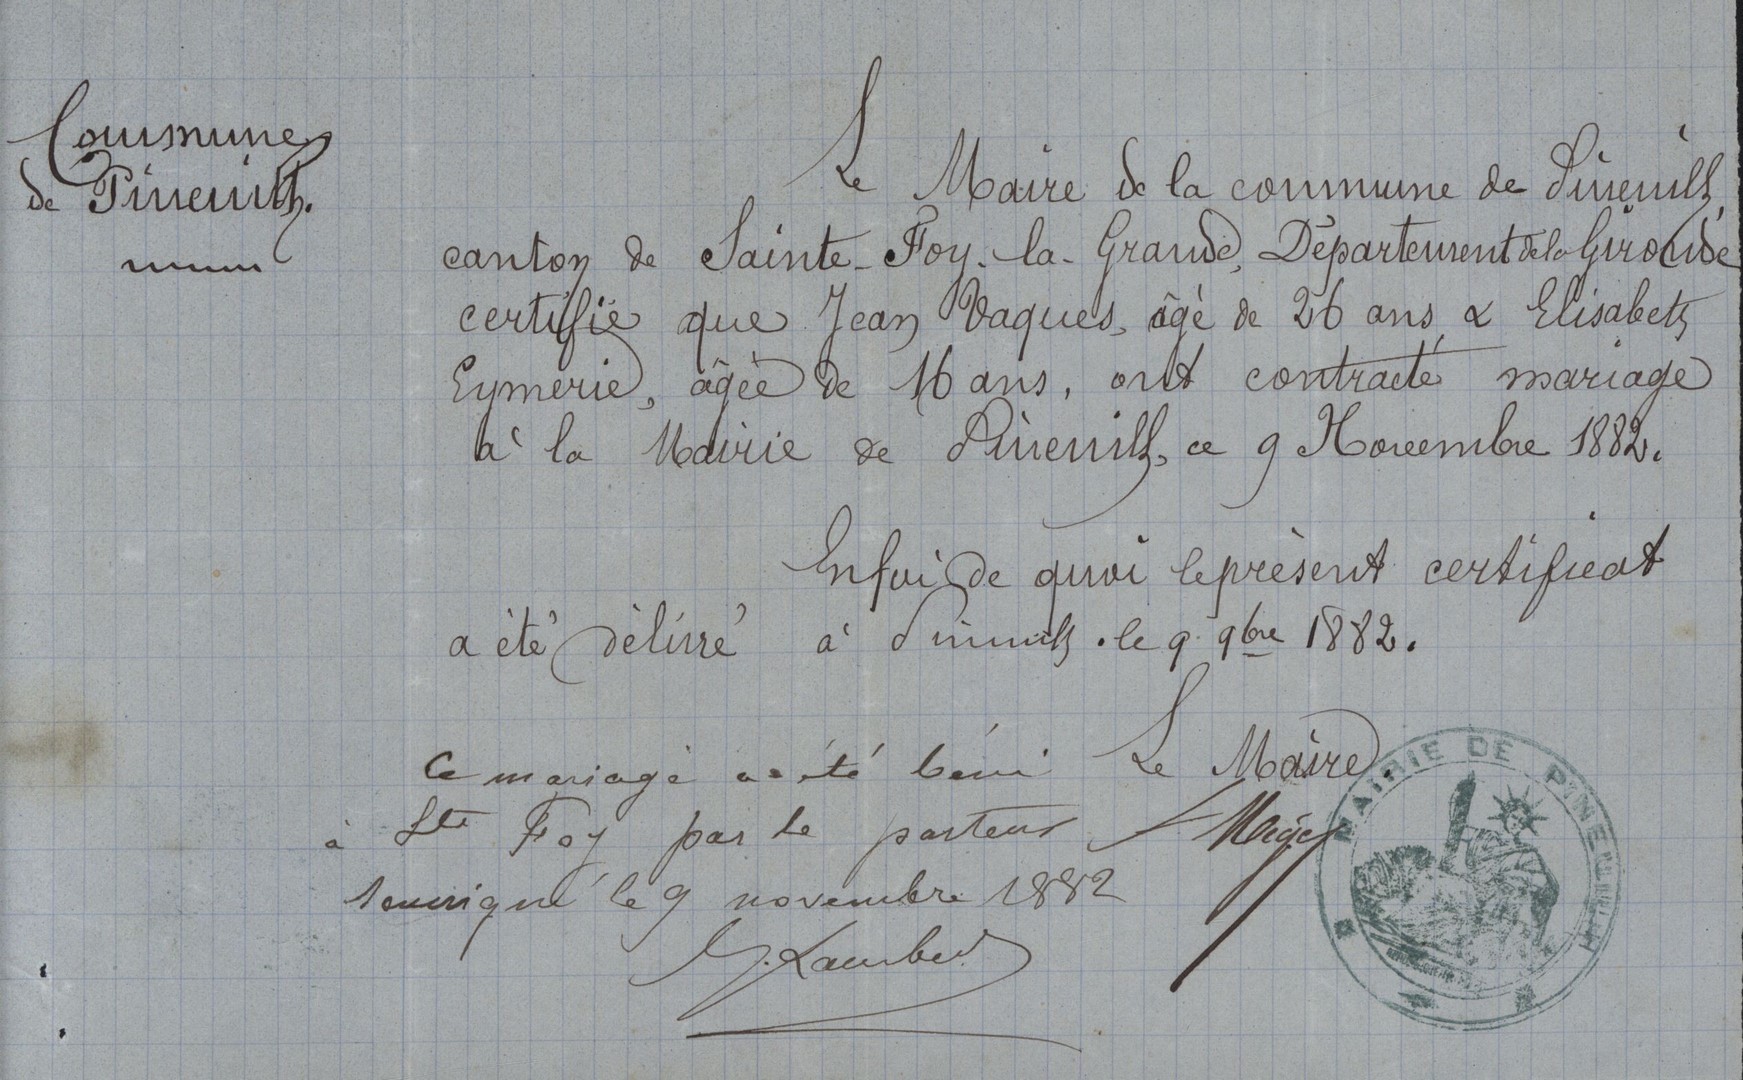 Commune
de Pineuilh.
Le Maire de la commune de Pineuilh,
canton de Sainte-Foy-la-Grande, Département de la Gironde
certifie que Jean Vaques, âgé de 26 ans & Elisabeth
Eymerie, âgée de 16 ans, ont contracté mariage
à la Mairie de Pineuilh, ce 9 Novembre 1882.
En foi de quoi le présent certificat
a été délivré à Pineuilh. le 9 9bre 1882.
Le Maire
Ce mariage a été béni
à Ste Foy par le pasteur
soussigné le 9 novembre 1882
Lambert
MAIRIE DE PINEUILH